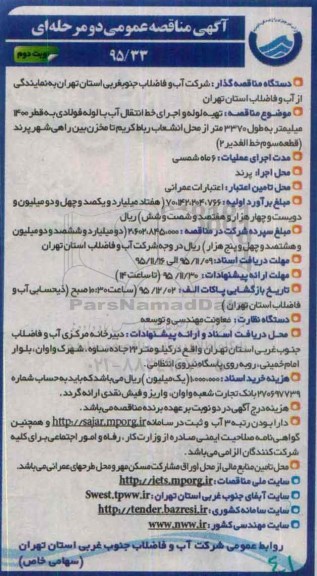 آگهی مناقصه عمومی دو مرحله‌ای
۹۵/۳۳
نوبت دوم
دستگاه مناقصه گذار : شرکت آب و فاضلاب جنوبغربی استان تهران به نمایندگی
از آب و فاضلاب استان تهران
موضوع مناقصه : تهیه لوله و اجرای خط انتقال آب با لوله فولادی به قطر ۱۴۰۰
میلیمتر به طول ۳۳۷۰ متر از محل انشعاب رباط کریم تا مخزن بین راهی شهر پرند
(قطعه سوم خط الغدیر ۲)
مدت اجرای عملیات : ۶ ماه شمسی
محل اجرا: پرند
محل تامین اعتبار : اعتبارات عمرانی
مبلغ برآورد اولیه : ۷۰،۱۴۲،۲۰۴،۷۶۶ ( هفتاد میلیارد و یکصد و چهل و دو میلیون و
دویست و چهار هزار و هفتصد و شصت و شش ) ریال
مبلغ سپرده شرکت در مناقصه : ۲،۶۰۲،۸۴۵،۰۰۰ (دو میلیارد و ششصد و دو میلیون
و هشتصد و چهل و پنج هزار ) ریال در وجه شرکت آب و فاضلاب استان تهران
مهلت دریافت اسناد: ۹۵/۱۱/۰۹ الی ۹۵/۱۱/۱۶
مهلت ارائه پیشنهادات : ۹۵/۱۱/۳۰ (تا ساعت ۱۴)
تاریخ بازگشایی پاکات الف : ۹۵/۱۲/۰۲ (ساعت ۱۰:۳۰ صبح (ذیحسابی آب و
فاضلاب استان تهران)
دستگاه نظارت : معاونت مهندسی و توسعه
محل دریافت اسناد و ارائه پیشنهادات : دبیرخانه مرکزی آب و فاضلاب
جنوب غربی استان تهران واقع در کیلومتر ۲۲ جاده ساوه، شهرک واوان، بلوار
امام خمینی، روبه روی پاسگاه نیروی انتظامی.
هزینه خرید اسناد : ۱،۰۰۰،۰۰۰ (یک میلیون ) ریال می باشد که باید به حساب شماره
۲۷۰۶۹۷۷۳۹ بانک تجارت شعبه واوان، واریز و فیش نقدی ارائه گردد .
هزینه درج آگهی در دو نوبت بر عهده برنده مناقصه می باشد.
دارا بودن رتبه ۳ آب و ثبت در سامانه http://sajar.mporg.ir و همچنین
گواهی نامه صلاحیت ایمنی صادره از وزارت کار ، رفاه و امور اجتماعی برای کلیه
شرکت کنندگان الزامی می باشد.
محل تامین منابع مالی از محل اوراق مشارکت مسکن مهر و محل طرحهای عمرانی می باشد.
سایت ملی مناقصات : http://iets.mporg.ir
سایت آبفای جنوب غربی استان تهران : Swest.tpww.ir
سایت سامانه کشوری : http://tender.bazresi.ir
سایت مهندسی کشور : www.nww.ir
روابط عمومی شرکت آب و فاضلاب جنوب غربی استان تهران
(سهامی خاص)